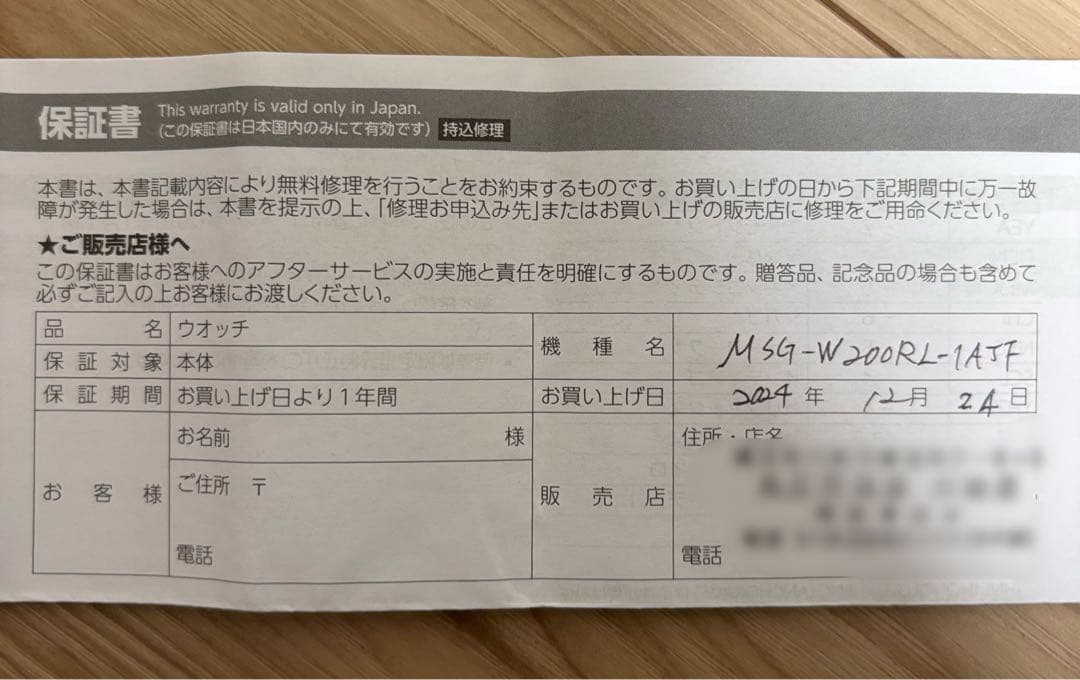 保証書 This warranty is valid only in Japan.
(この保証書は日本国内のみにて有効です) 持込修理
本書は、本書記載内容により無料修理を行うことをお約束するものです。お買い上げの日から下記期間中に万一故
障が発生した場合は、本書を提示の上、「修理お申込み先」またはお買い上げの販売店に修理をご用命ください。
★ご販売店様へ
この保証書はお客様へのアフターサービスの実施と責任を明確にするものです。贈答品、記念品の場合も含めて
必ずご記入の上お客様にお渡しください。
品名 ウオッチ
保証対象 本体
機種名 MSG-W200RL-1AJF
保証期間 お買い上げ日より1年間
お買い上げ日 2024年 12月 24日
お客様
お名前 様
ご住所 〒
電話
販売店
住所・店名
電話